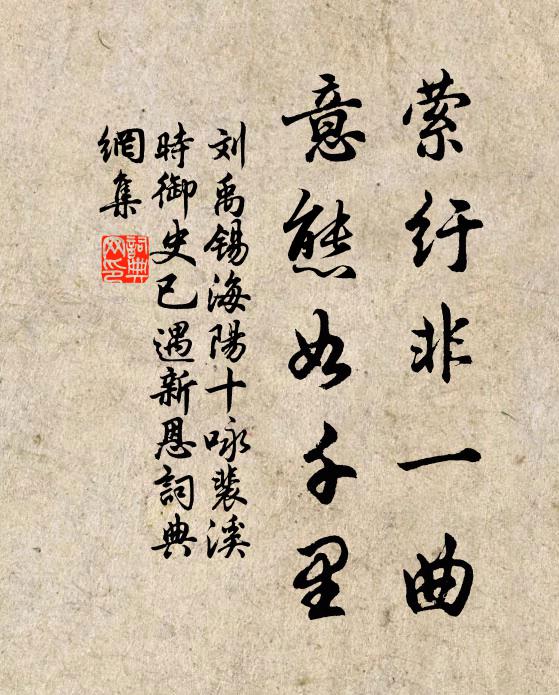 萦紆非一曲
意態如千里
刘禹锡海陽十咏裴溪
時御史已遇新恩詞典
網集
詞典
网印